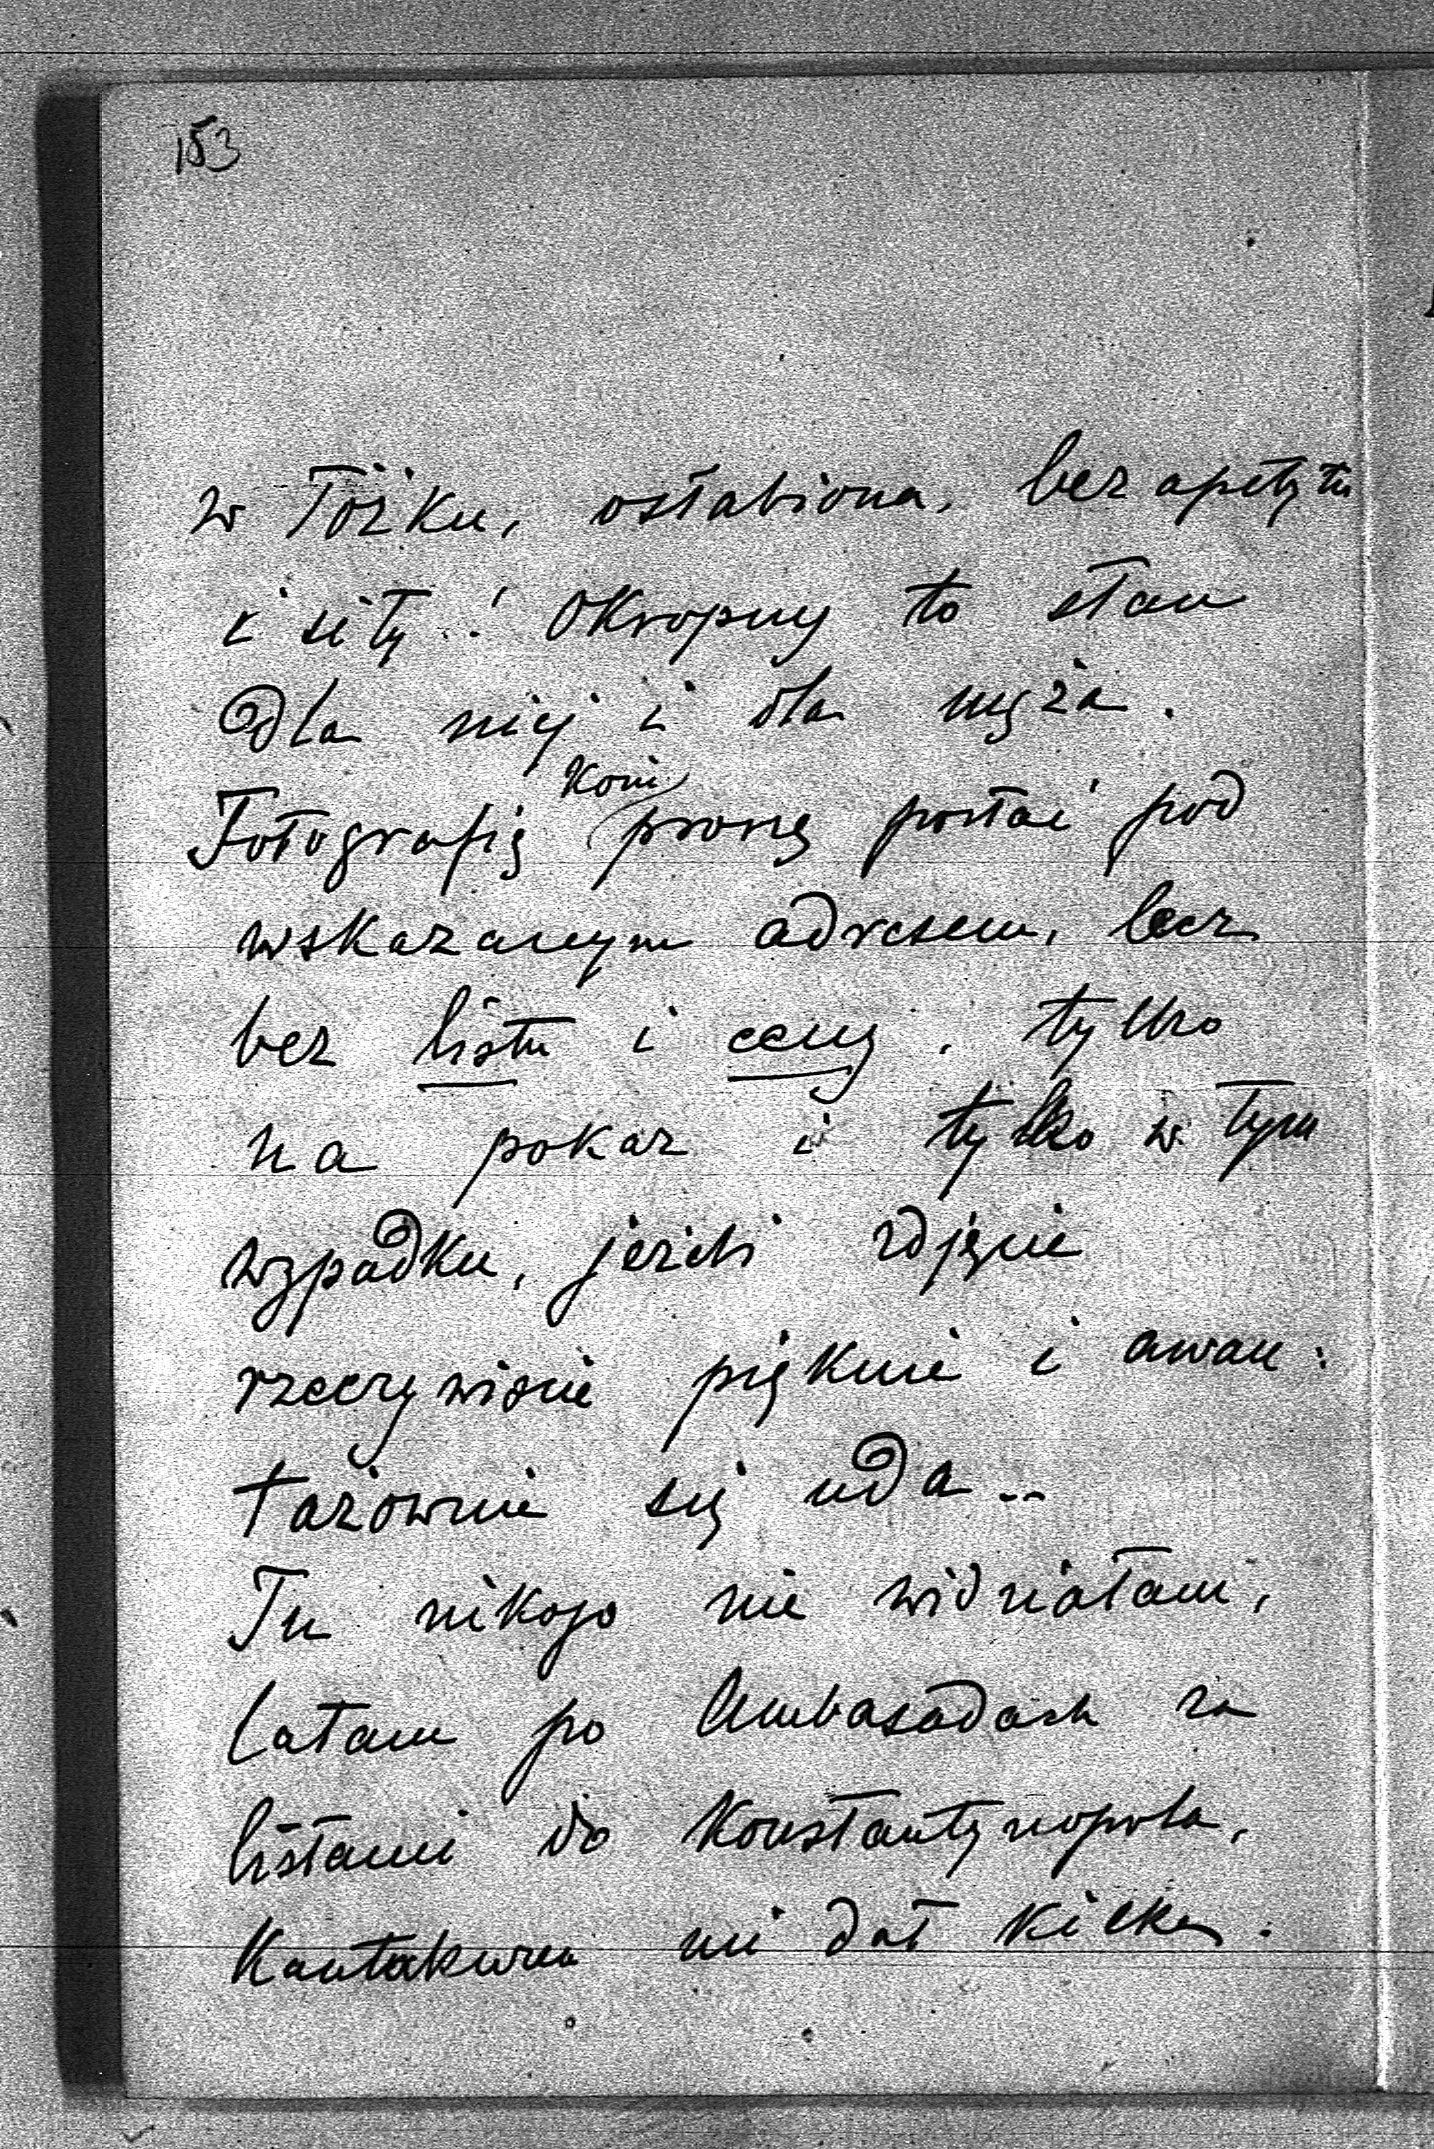 153
w łóżku, osłabiona, bez apetytu
i siły..! Okropny to stan
dla niej i dla męża.
Koni
Fotografię proszę posłać pod
wskazanym adresem, lecz
bez listu i ceny, tylko
na pokaz i tylko w tym
wypadku, jeżeli zdjęcie
rzeczywiście pięknie i awan:
tażownie się uda..
Tu nikogo nie widziałam,
latam po Ambasadach za
listami do Konstantynopola,
mi dał kilka.